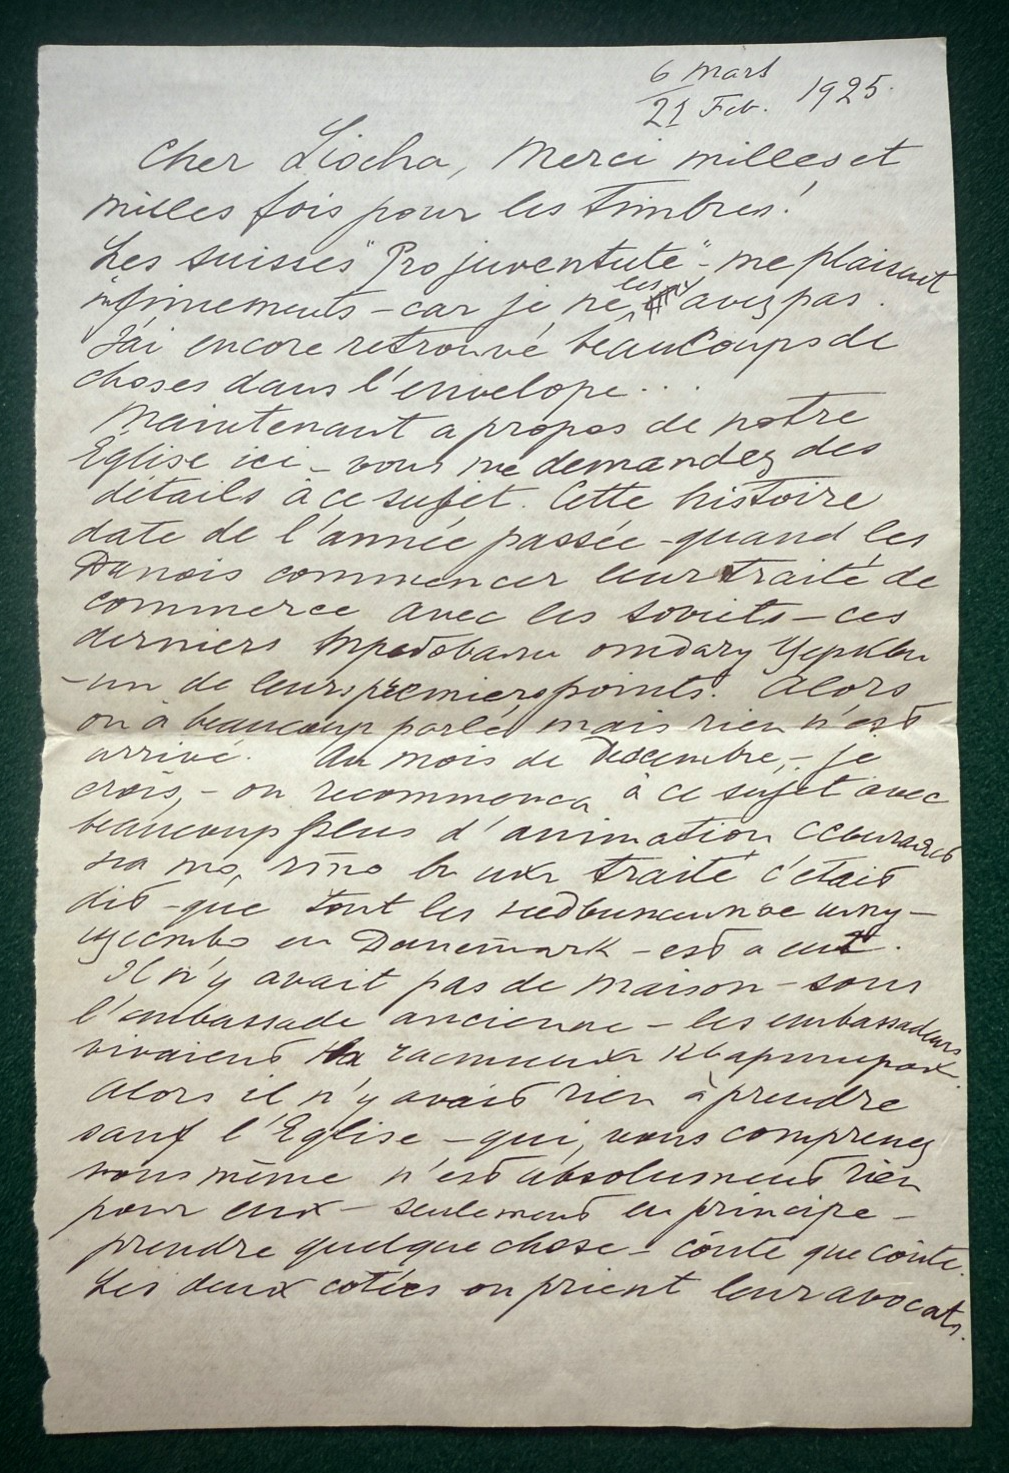 6 Mars
21 Feb. 1925.
Cher Liocha, Merci milles et
milles fois pour les Timbres!
Les suisses "Pro juventute" - me plaisent
infinements - car je ne les avez pas.
J'ai encore retrouvé beaucoups de
choses dans l'envelope...
Maintenant a propos de notre
Eglise ici - vous me demandez des
détails à ce sujet. Cette histoire
date de l'année passée - quand les
Danois commencer leur traité de
commerce avec les soviets - ces
derniers требовали отдачу Церкви
- un de leurs premiers points. Alors
on à beaucoup parlé, mais rien n'est
arrivé. Au mois de Decembre, - je
crois, - on recommonca à ce sujet avec
beaucoup plus d'animation ссылаясь
на то, что въ ихъ traité c'etait
dit - que tout les недвижимое иму-
щество en Danemark - est a eux.
Il n'y avait pas de maison - sous
l'embassade ancienne - les embassadeurs
vivaient на частныхъ квартирахъ.
Alors il n'y avait rien à prendre
sauf l'Eglise - qui, vous comprenez
vous même n'est absolument rien
pour eux - seulement en principe -
prendre quelque chose - coûte que coûte.
Les deux cotées on prient leur avocats.